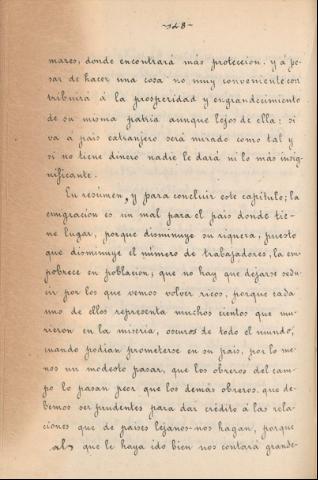 -48-
mares, donde encontrará más proteccion. y á pe-
sar de hacer una cosa no muy conveniente con
tribuirá á la prosperidad y engrandecimiento
de su misma patria aunque lejos de ella: si
vá á pais extranjero será mirado como tal y
si no tiene dinero nadie le dará ni lo más insig-
nificante.
En resúmen, y para concluir este capítulo; la
emigracion es un mal para el pais donde tie-
ne lugar, porque disminuye su riqueza, puesto
que disminuye el número de trabajadores, la em-
pobrece en poblacion, que no hay que dejarse sedu-
cir por los que vemos volver ricos, porque cada
uno de ellos representa muchos cientos que mu-
rieron en la miseria, oscuros de todo el mundo,
cuando podian prometerse en su pais, por lo me-
nos un modesto pasar, que los obreros del cam-
po lo pasan peor que los demás obreros, que de-
bemos ser prudentes para dar crédito á las rela-
ciones que de paises lejanos nos hagan, porque
al que le haya ido bien nos contará grande-